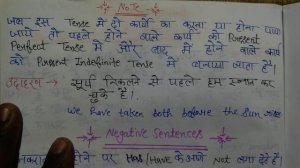 NOTE
जब इस Tense में दो कार्यों का करना या होना पाया
जाये तो पहले होने वाले कार्य को Present
Perfect Tense में और बाद में होने वाले कार्य
को Present Indefinite Tense में बनाया जाता है।
उदाहरण → सूर्य निकलने से पहले हम स्नान कर
चुके हैं।
We have taken bath before the Sun rises
Negative Sentences
होने पर Has/Have के आगे Not लगा देते हैं।